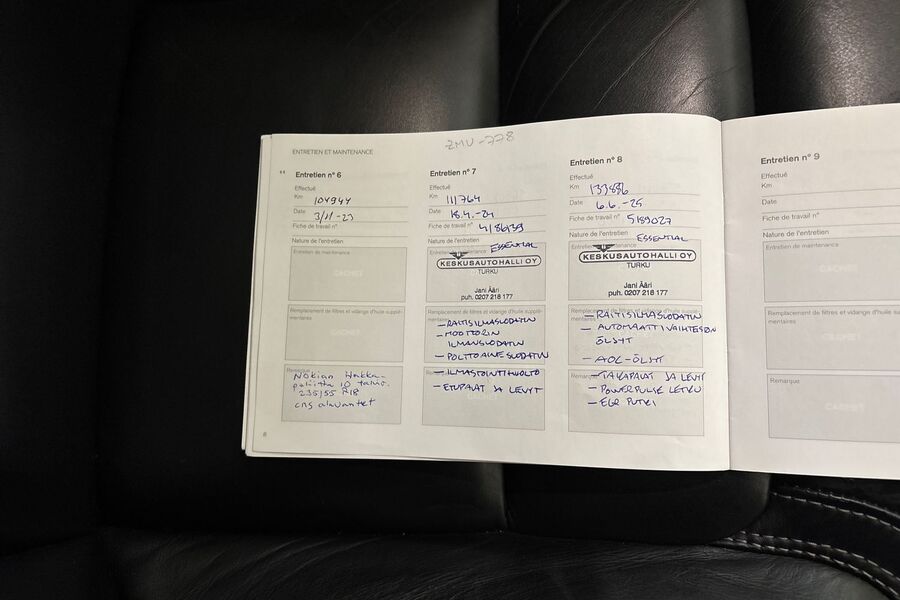 ZMU-778
ENTRETIEN ET MAINTENANCE
Entretien n° 6
Effectué
Km 104944
Date 3/11-23
Fiche de travail n°
Nature de l'entretien
Entretien de maintenance
CACHET
Remplacement de filtres et vidange d'huile supplé-
mentaires
CACHET
Remarque
Nokian Hakka-
peliitta 10 talvir.
235/55 R18
CRS alavanteet
8
Entretien n° 7
Effectué
Km 111764
Date 18.4.-24
Fiche de travail n°
Nature de l'entretien
ESSENTIAL
KESKUSAUTOHALLI OY
TURKU
Jani Ääri
puh. 0207 218 177
- RAITISILMASUODATIN
- MOOTTORIN
ILMANSUODATIN
- POLTTOAINESUODATIN
- ILMASTOINTIHUOLTO
- ETUPALAT JA LEVYT
Entretien n° 8
Effectué
Km 133886
Date 6.6.-25
Fiche de travail n° 5189027
Nature de l'entretien
ESSENTIAL
KESKUSAUTOHALLI OY
TURKU
Jani Ääri
puh. 0207 218 177
- RAITISILMASUODATIN
- AUTOMAATTIVAIHTEISTON
ÖLJYT
- AOC-ÖLJYT
- TAKAPALAT JA LEVYT
- POWERPULSE LETKU
- EGR PUTKI
Entretien n° 9
Effectué
Km
Date
Fiche de travail n°
Nature de l'entretien
Entretien de maintenance
CACHET
Remplacement de filtres et vidange d'huile supplé-
mentaires
CACHET
Remarque
CACHET